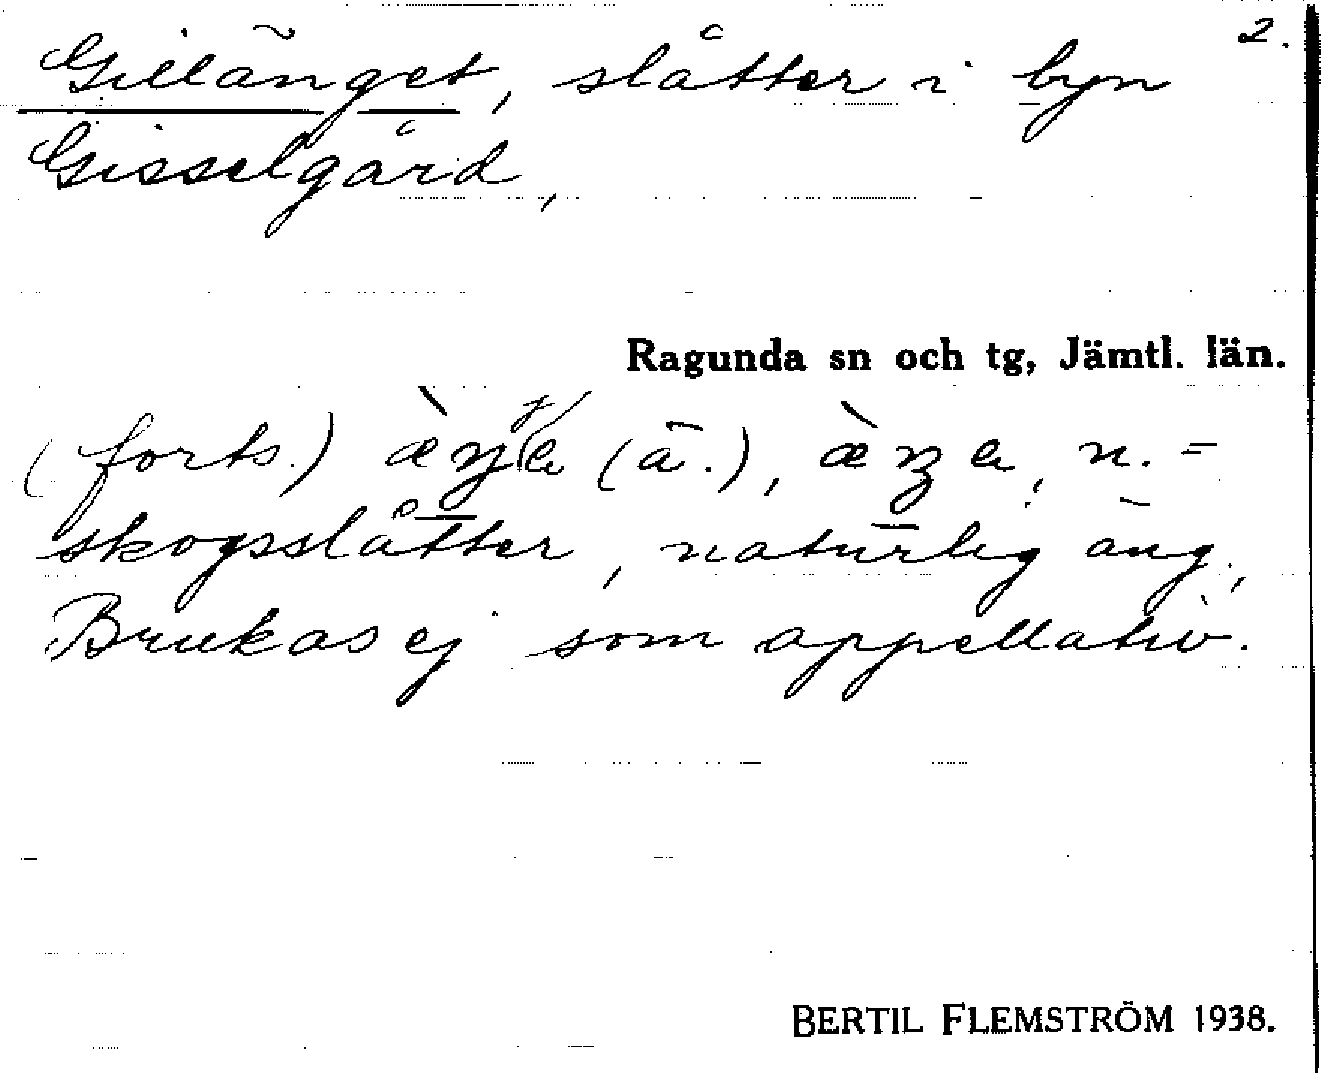 2.
Gillänget, slåtter i byn
Gisselgård,
Ragunda sn och tg, Jämtl. län.
(forts.) (ä.), n. =
skogsslåtter, naturlig äng,
Brukas ej som appellativ.
BERTIL FLEMSTRÖM 1938.